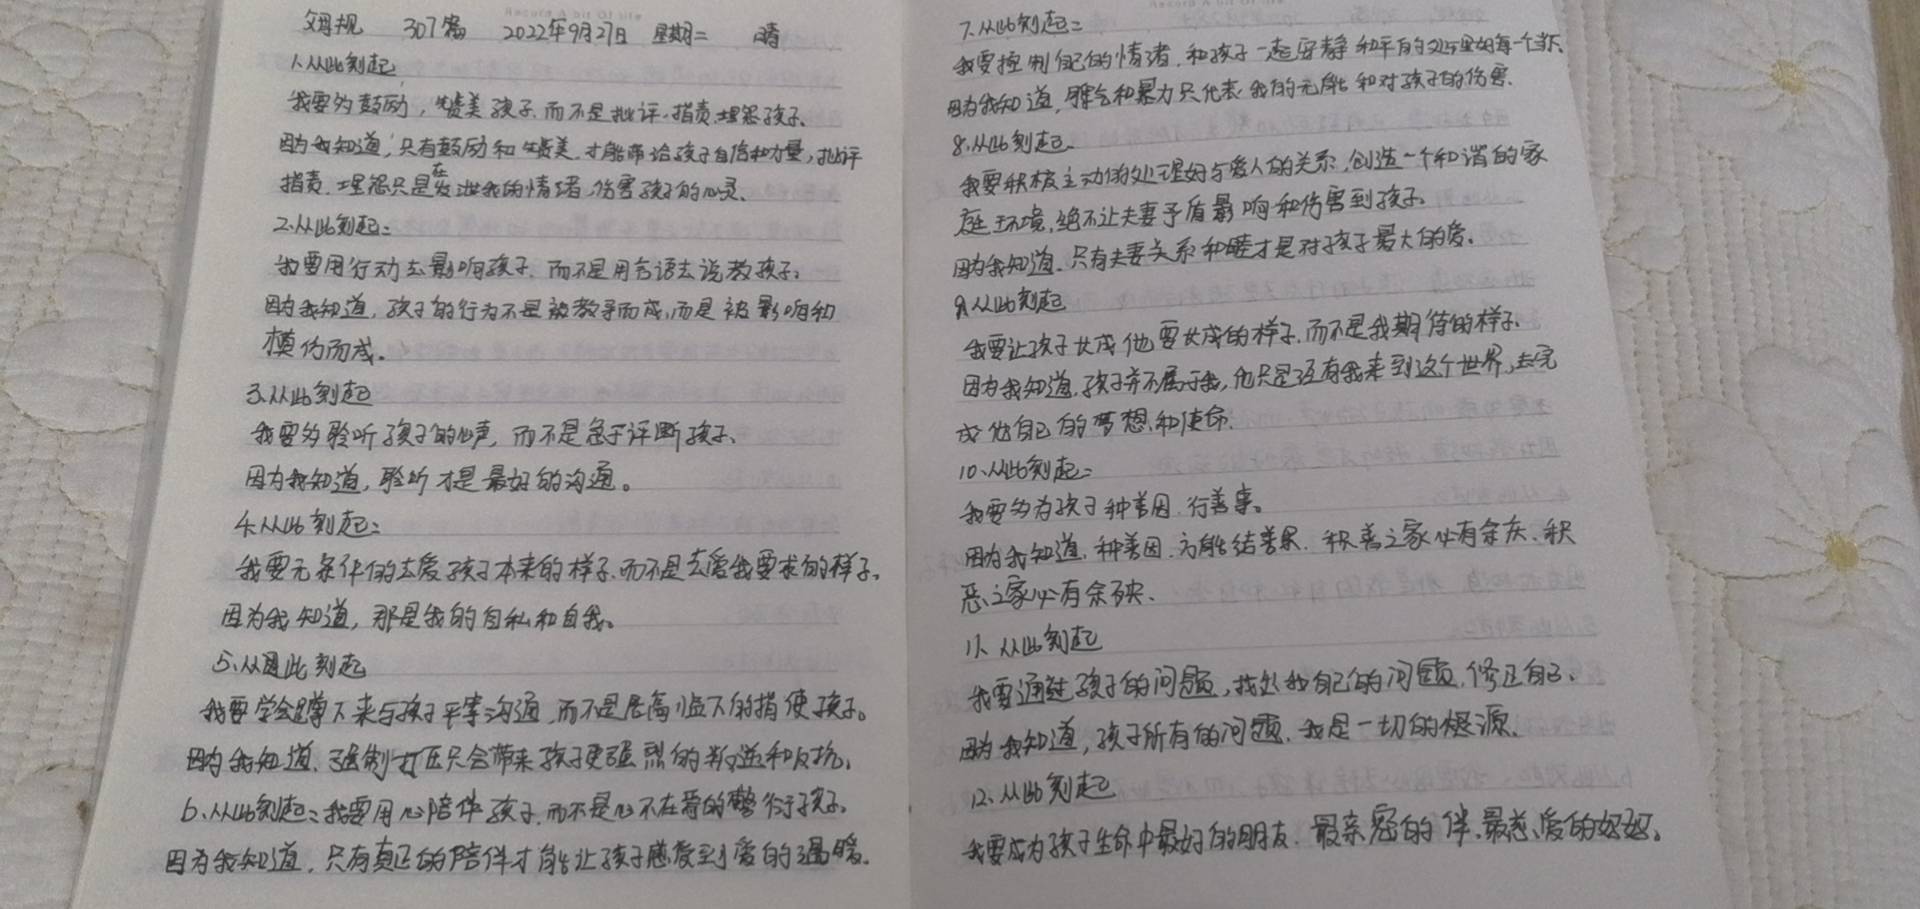 父母规 307篇 2022年9月27日 星期二 晴
1.从此刻起
我要多鼓励,赞美孩子,而不是批评、指责、埋怨孩子、
因为我知道,只有鼓励和赞美,才能带给孩子自信和力量,批评
指责、埋怨只是在发泄我的情绪,伤害孩子的心灵、
2.从此刻起:
我要用行动去影响孩子,而不是用言语去说教孩子;
因为我知道,孩子的行为不是被教导而成,而是被影响和
模仿而成。
3.从此刻起
我要多聆听孩子的心声,而不是急于评断孩子、
因为我知道,聆听才是最好的沟通。
4.从此刻起:
我要无条件的去爱孩子本来的样子,而不是去爱我要求的样子,
因为我知道,那是我的自私和自我。
5、从此刻起
我要学会蹲下来与孩子平等沟通,而不是居高临下的指使孩子。
因为我知道、强制打压只会带来孩子更强烈的叛逆和反抗,
6、从此刻起:我要用心陪伴孩子,而不是心不在焉的敷衍于孩子,
因为我知道,只有真正的陪伴才能让孩子感受到爱的温暖.
Record A bit Of life
7.从此刻起:
我要控制自己的情绪,和孩子一起安静和平的处理好每一个当下、
因为我知道,脾气和暴力只代表我的无能和对孩子的伤害.
8.从此刻起、
我要积极主动的处理好与爱人的关系,创造一个和谐的家
庭环境,绝不让夫妻矛盾影响和伤害到孩子。
因为我知道,只有夫妻关系和睦才是对孩子最大的爱。
9.从此刻起
我要让孩子长成他要长成的样子,而不是我期待的样子、
因为我知道,孩子并不属于我,他只是经有我来到这个世界,去完
成他自己的梦想和使命.
10.从此刻起:
我要多为孩子种善因、行善事。
因为我知道,种善因,方能结善果,积善之家必有余庆、积
恶之家必有余殃、
11. 从此刻起
我要通过孩子的问题,找处我自己的问题,修正自己、
因为我知道,孩子所有的问题,我是一切的根源、
12、从此刻起
我要成为孩子生命中最好的朋友、最亲密的伴、最慈爱的妈妈。